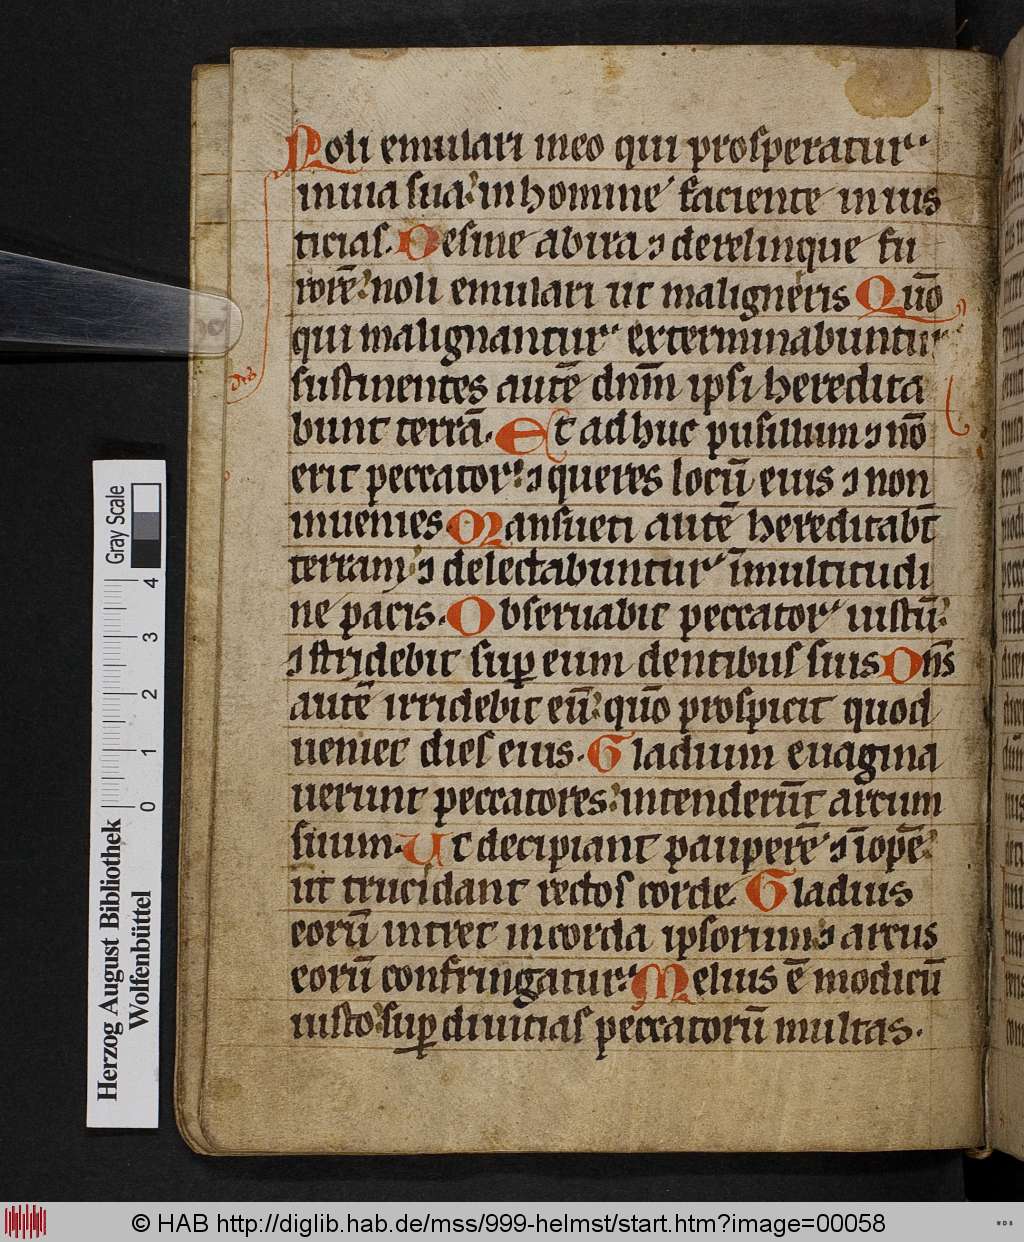 Noli emulari in eo qui prosperatur
in uia sua in homine faciente inius
ticias. Desine ab ira ⁊ derelinque fu
rorē noli emulari ut maligneris Quō
qui malignantur exterminabuntur
sustinentes autē dnm̄ ipsi heredita
bunt terrā. Et adhuc pusillum ⁊ nō
erit peccator ⁊ queres locū eius ⁊ non
inuenies. Mansueti autē hereditabt̄
terram ⁊ delectabuntur ī multitudi
ne pacis. Obseruabit peccator iustū
⁊ stridebit suꝑ eum dentibus suis Dn̄s
autē irridebit eū quō prospicit quod
ueniet dies eius. Gladium euagina
uerunt peccatores intenderūt arcum
suum. Ut decipiant pauperē ⁊ īopē
ut trucidant rectos corde. Gladius
eorū intret in corda ipsorum ⁊ arcus
eorū confringatur Melius ē modicū
iusto suꝑ diuitias peccatorū multas.
Gray Scale
4
3
2
1
0
Herzog August Bibliothek
Wolfenbüttel
© HAB http://diglib.hab.de/mss/999-helmst/start.htm?image=00058